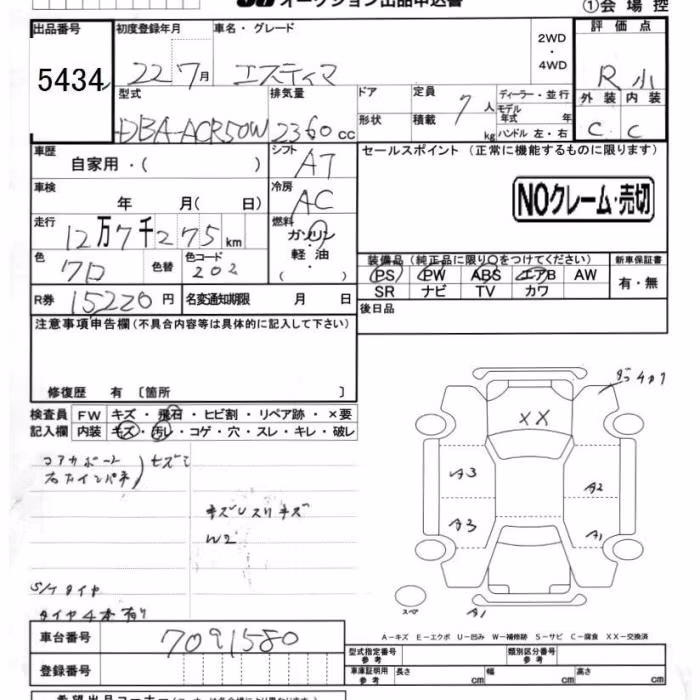 オークション出品申込書
①会場控
出品番号 初度登録年月 車名・グレード 2WD・4WD 評価点
5434 22 7月 エスティマ R 小
型式 排気量 ドア 定員 7人 ディーラー・並行 外装 内装
DBA-ACR50W 2360cc 形状 積載 kg モデル年式 年 ハンドル 左・右 C C
車歴 自家用・( ) シフト AT セールスポイント (正常に機能するものに限ります)
車検 年 月( 日) 冷房 AC NOクレーム・売切
走行 12万7千275km 燃料 ガソリン・軽油・( )
装備品(純正品に限り○をつけてください) 新車保証書
色 クロ 色替 色コード 202 PS PW ABS エアB AW 有・無
SR ナビ TV カワ
R券 15220円 名変通知期限 月 日 後日品
注意事項申告欄(不具合内容等は具体的に記入して下さい)
修復歴 有 〔箇所 〕
検査員 FW キズ・飛石・ヒビ割・リペア跡・×要
記入欄 内装 キズ・汚レ・コゲ・穴・スレ・キレ・破レ
コアサポート
右
キズUスリキズ
W2
S/Tタイヤ
タイヤ4本有り
XX
A3 A2
A3 A1
スペ A1
A-キズ E-エクボ U-凹み W-補修跡 S-サビ C-腐食 XX-交換済
車台番号 7091580 型式指定番号 参考 類別区分番号 参考
登録番号 車庫証明用 参考 長さ cm 幅 cm 高さ cm
希望出品コーナー